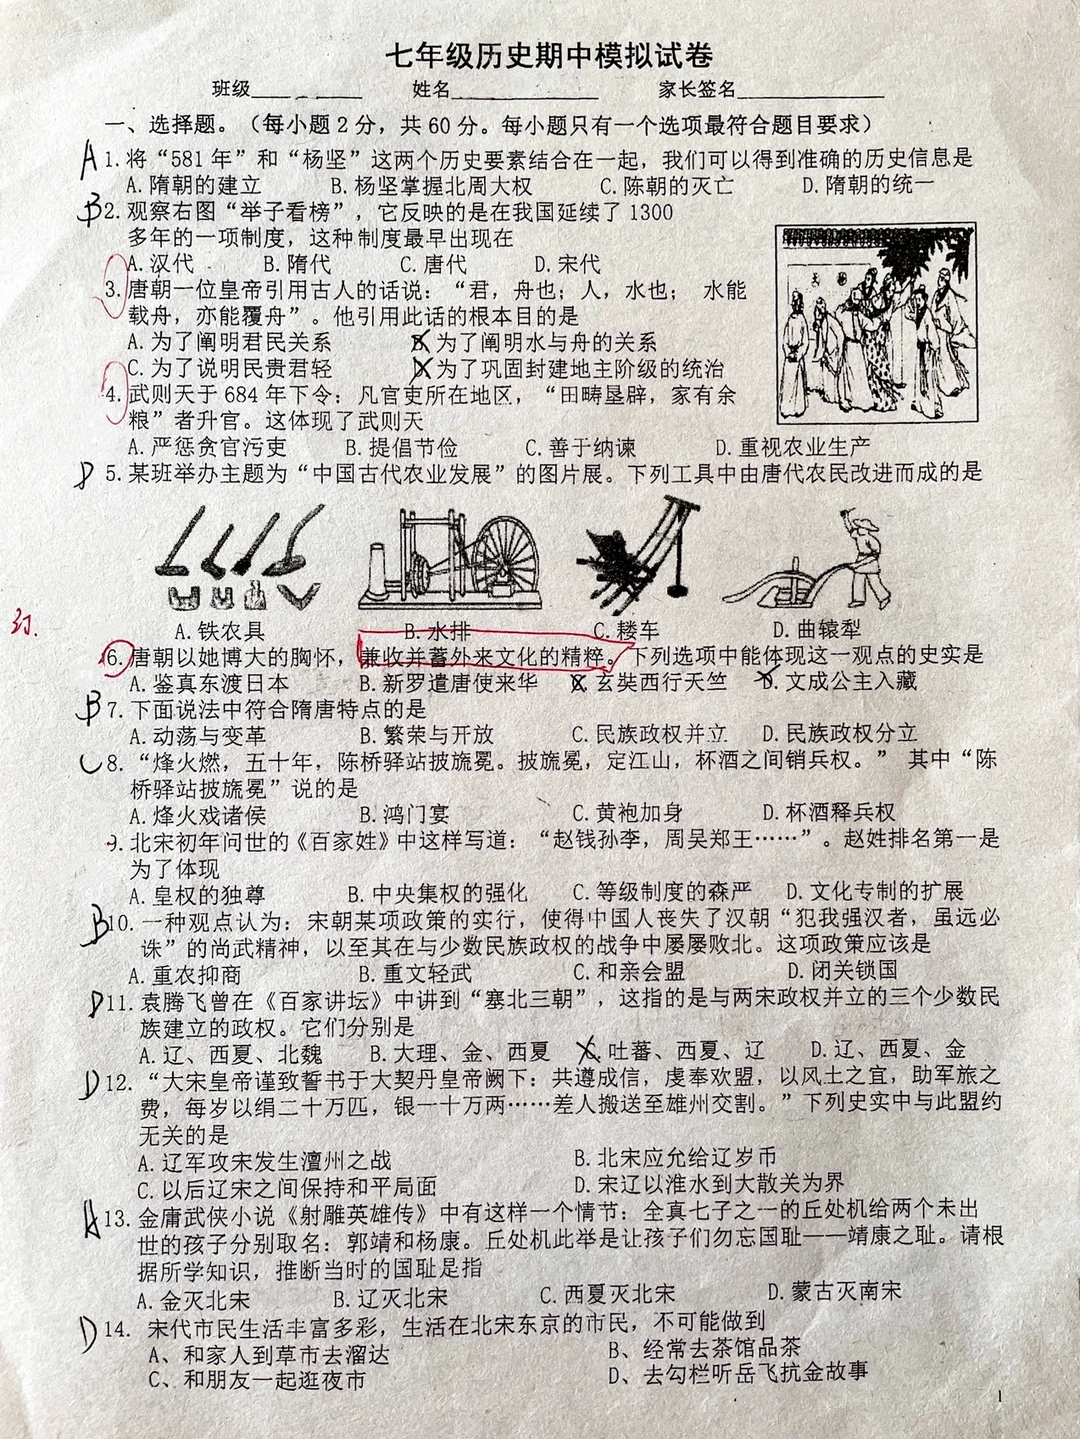 七年级历史期中模拟试卷
班级 姓名 家长签名
一、选择题。（每小题2分，共60分。每小题只有一个选项最符合题目要求）
A 1.将“581年”和“杨坚”这两个历史要素结合在一起，我们可以得到准确的历史信息是
A.隋朝的建立 B.杨坚掌握北周大权 C.陈朝的灭亡 D.隋朝的统一
B 2.观察右图“举子看榜”，它反映的是在我国延续了1300
多年的一项制度，这种制度最早出现在
A.汉代 B.隋代 C.唐代 D.宋代
3.唐朝一位皇帝引用古人的话说：“君，舟也；人，水也； 水能
载舟，亦能覆舟”。他引用此话的根本目的是
A.为了阐明君民关系 B.为了阐明水与舟的关系
C.为了说明民贵君轻 D.为了巩固封建地主阶级的统治
4.武则天于684年下令：凡官吏所在地区，“田畴垦辟，家有余
粮”者升官。这体现了武则天
A.严惩贪官污吏 B.提倡节俭 C.善于纳谏 D.重视农业生产
D 5.某班举办主题为“中国古代农业发展”的图片展。下列工具中由唐代农民改进而成的是
A.铁农具 B.水排 C.耧车 D.曲辕犁
6.唐朝以她博大的胸怀，兼收并蓄外来文化的精粹。下列选项中能体现这一观点的史实是
A.鉴真东渡日本 B.新罗遣唐使来华 C.玄奘西行天竺 D.文成公主入藏
B 7.下面说法中符合隋唐特点的是
A.动荡与变革 B.繁荣与开放 C.民族政权并立 D.民族政权分立
C 8.“烽火燃，五十年，陈桥驿站披旒冕。披旒冕，定江山，杯酒之间销兵权。” 其中“陈
桥驿站披旒冕”说的是
A.烽火戏诸侯 B.鸿门宴 C.黄袍加身 D.杯酒释兵权
9.北宋初年问世的《百家姓》中这样写道：“赵钱孙李，周吴郑王……”。赵姓排名第一是
为了体现
A.皇权的独尊 B.中央集权的强化 C.等级制度的森严 D.文化专制的扩展
B 10.一种观点认为：宋朝某项政策的实行，使得中国人丧失了汉朝“犯我强汉者，虽远必
诛”的尚武精神，以至其在与少数民族政权的战争中屡屡败北。这项政策应该是
A.重农抑商 B.重文轻武 C.和亲会盟 D.闭关锁国
D 11.袁腾飞曾在《百家讲坛》中讲到“塞北三朝”，这指的是与两宋政权并立的三个少数民
族建立的政权。它们分别是
A.辽、西夏、北魏 B.大理、金、西夏 C.吐蕃、西夏、辽 D.辽、西夏、金
D 12.“大宋皇帝谨致誓书于大契丹皇帝阙下：共遵成信，虔奉欢盟，以风土之宜，助军旅之
费，每岁以绢二十万匹，银一十万两……差人搬送至雄州交割。”下列史实中与此盟约
无关的是
A.辽军攻宋发生澶州之战 B.北宋应允给辽岁币
C.以后辽宋之间保持和平局面 D.宋辽以淮水到大散关为界
A 13.金庸武侠小说《射雕英雄传》中有这样一个情节：全真七子之一的丘处机给两个未出
世的孩子分别取名：郭靖和杨康。丘处机此举是让孩子们勿忘国耻——靖康之耻。请根
据所学知识，推断当时的国耻是指
A.金灭北宋 B.辽灭北宋 C.西夏灭北宋 D.蒙古灭南宋
D 14. 宋代市民生活丰富多彩，生活在北宋东京的市民，不可能做到
A、和家人到草市去溜达 B、经常去茶馆品茶
C、和朋友一起逛夜市 D、去勾栏听岳飞抗金故事
1